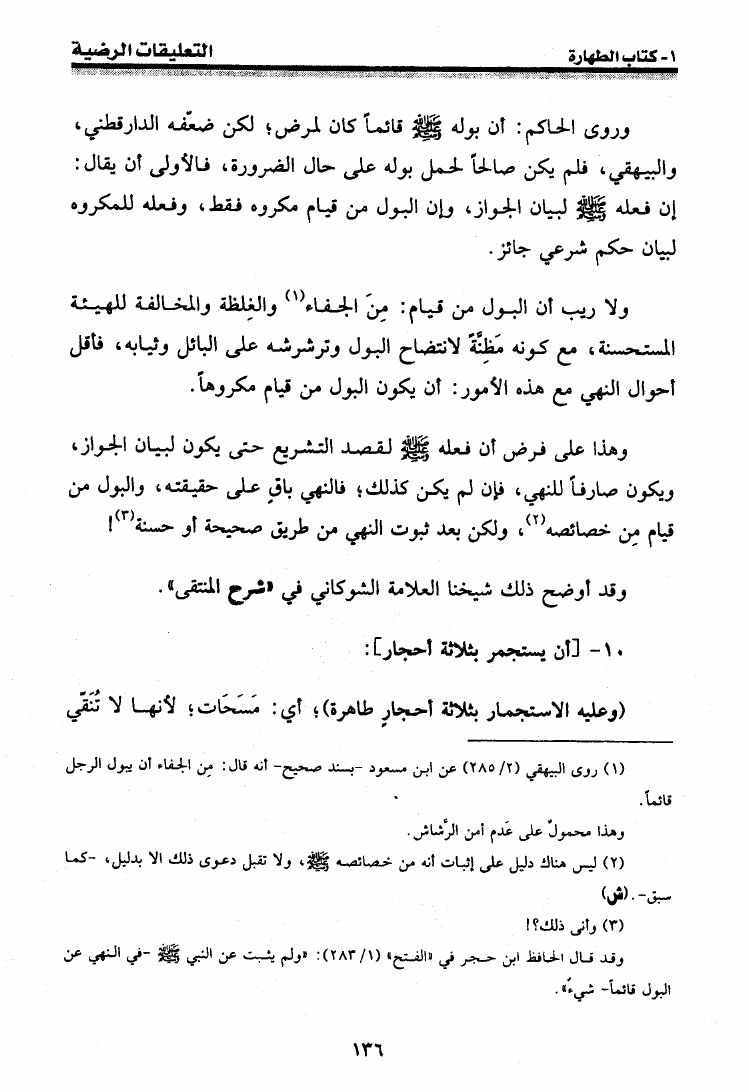 ١- كتاب الطهارة التعليقات الرضية
وروى الحاكم: أن بوله ﷺ قائماً كان لمرض؛ لكن ضعّفه الدارقطني،
والبيهقي، فلم يكن صالحاً لحمل بوله على حال الضرورة، فالأولى أن يقال:
إن فعله ﷺ لبيان الجواز، وإن البول من قيام مكروه فقط، وفعله للمكروه
لبيان حكم شرعي جائز.
ولا ريب أن البول من قيام: مِنَ الجفاء(١) والغِلظة والمخالفة للهيئة
المستحسنة، مع كونه مَظِنَّةً لانتضاح البول وترشرشه على البائل وثيابه، فأقل
أحوال النهي مع هذه الأمور: أن يكون البول من قيام مكروهاً.
وهذا على فرض أن فعله ﷺ لقصد التشريع حتى يكون لبيان الجواز،
ويكون صارفاً للنهي، فإن لم يكن كذلك؛ فالنهي باقٍ على حقيقته، والبول من
قيام مِن خصائصه(٢)، ولكن بعد ثبوت النهي من طريق صحيحة أو حسنة(٣)!
وقد أوضح ذلك شيخنا العلامة الشوكاني في «شرح المنتقى».
١٠- [أن يستجمر بثلاثة أحجار]:
(وعليه الاستجمار بثلاثة أحجارٍ طاهرة)؛ أي: مَسَحَات؛ لأنها لا تُنَقّي
(١) روى البيهقي (٢/ ٢٨٥) عن ابن مسعود -بسند صحيح- أنه قال: مِن الجفاء أن يبول الرجل
قائماً.
وهذا محمولٌ على عَدم أمن الرَّشاش.
(٢) ليس هناك دليل على إثبات أنه من خصائصه ﷺ، ولا تقبل دعوى ذلك الا بدليل، -كما
سبق-. (ش)
(٣) وأنى ذلك؟!
وقد قال الحافظ ابن حجر في «الفتح» (١/ ٢٨٣): «ولم يثبت عن النبي ﷺ -في النهي عن
البول قائماً- شيءٌ».
١٣٦